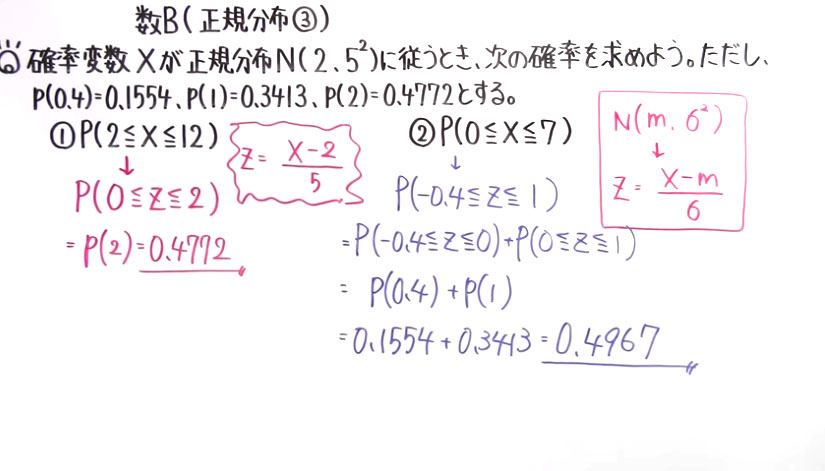 数B(正規分布③)
確率変数Xが正規分布N(2、5²)に従うとき、次の確率を求めよう。ただし、
P(0.4)=0.1554、P(1)=0.3413、P(2)=0.4772とする。
①P(2≦X≦12)
Z = (X-2)/5
↓
P(0≦Z≦2)
= P(2)=0.4772
②P(0≦X≦7)
↓
P(-0.4≦Z≦1)
=P(-0.4≦Z≦0)+P(0≦Z≦1)
= P(0.4)+P(1)
=0.1554+0.3413=0.4967
N(m, σ²)
↓
Z = (X-m)/σ